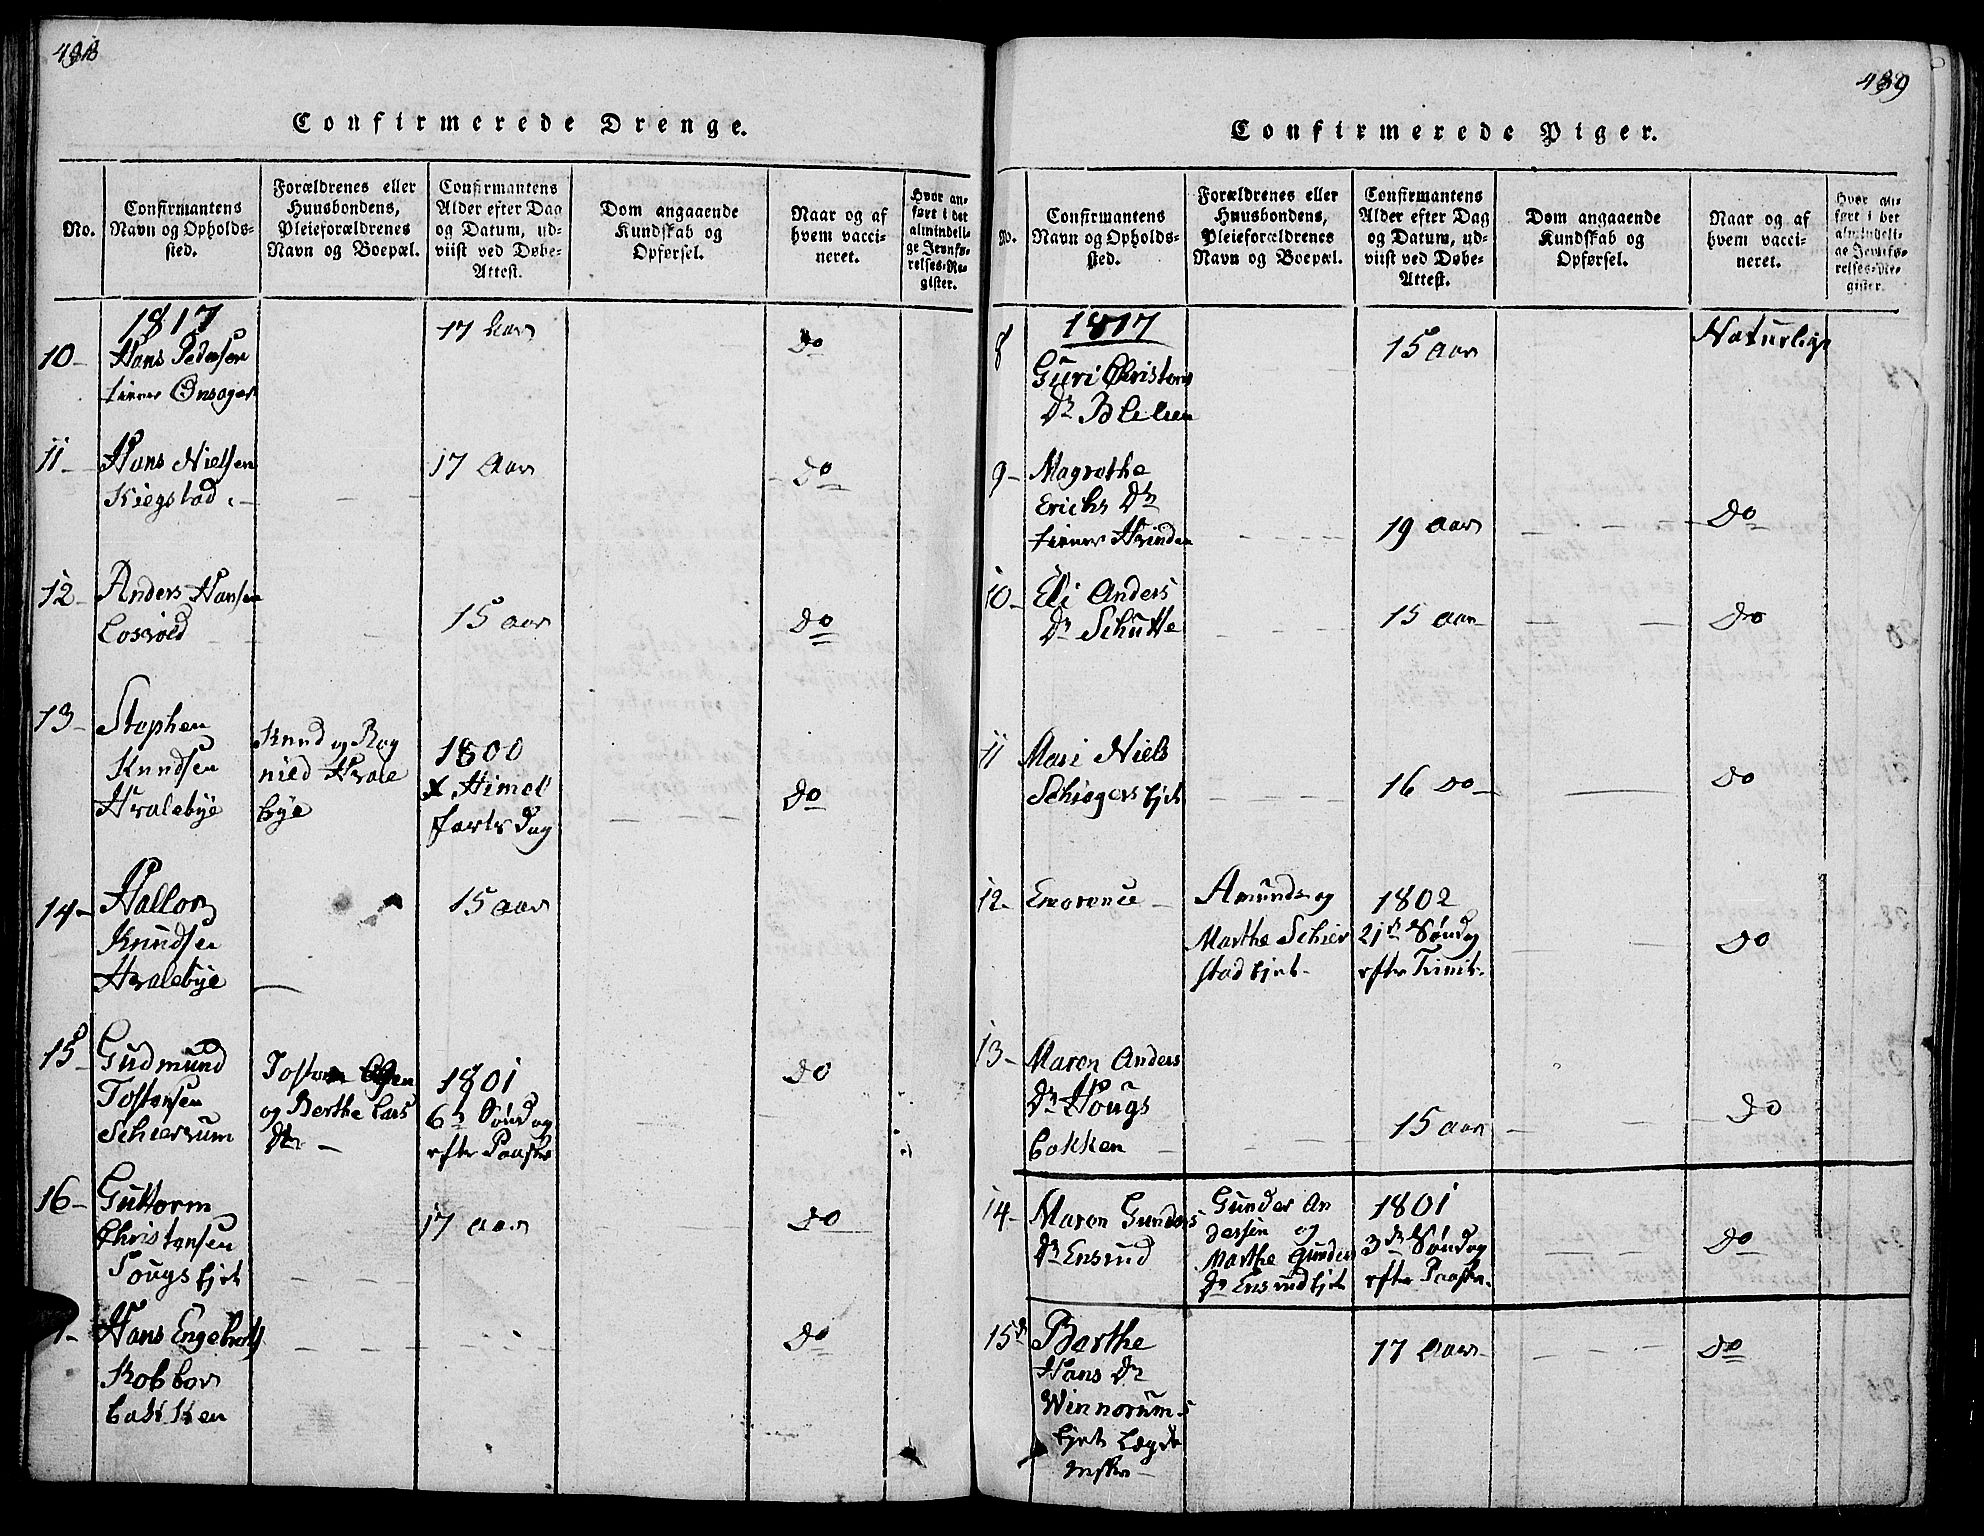 Confirmerede Drenge.
No.
Confirmantens
Navn og Opholds-
sted.
Forældrenes eller
Huusbondens,
Pleieforældrenes
Navn og Boepæl.
Confirmantens
Alder efter Dag
og Datum, ud-
viist ved Døbe-
Attest.
Dom angaaende
Kundskab og
Opførsel.
Naar og af
hvem vacci-
neret.
Hvor an-
ført i det
almindeli-
ge Jevnfø-
relses-Re-
gister.
1817
10-
Hans Pedersen
17 Aar
do
11-
Hans Nielsen
17 Aar
do
12-
Anders Hansen
15 aar
do
13-
Stephen
Knudsen
Hvalebye
Knud og Rag
nild Hvale
bye
1800
Himel
farts dag
do
14-
Hallor
Knudsen
Hvalebye
15 aar
15-
Gudmund
Tostensen
Schierrum
Tosten
og Berthe Lars
Dtr -
1801
6te Søndag
efter Paaske
do
16-
Guttorm
Christensen
17 aar
do
Hans Engebrets
bakken
do
439
Confirmerede Piger.
No.
Confirmantens
Navn og Opholds-
sted.
Forældrenes eller
Huusbondens,
Pleieforældrenes
Navn og Boepæl.
Confirmantens
Alder efter Dag
og Datum, ud-
viist ved Døbe-
Attest.
Dom angaaende
Kundskab og
Opførsel.
Naar og af
hvem vacci-
neret.
Hvor an-
ført i det
almindeli-
ge Jevnfø-
relses-Re-
gister.
1817
8
Guri Christens
Dr Blilien
15 aar
Naturlige
9-
Magrethe
Erichs Dr
19 aar
do
10-
Eli Anders
Dr Schutte
15 aar
do
11
Mari Niels
16 do
do
12-
Amund og
Marthe Schier
stad Ejet
1802
21de Søndag
efter Trinit.
do
13-
Maren Anders
Dr Hougs
bakken
15 aar
do
14-
Maren Gunders
Dr Ensrud
Gunder An
dersen og
Marthe Gunders
Dr Ensrud Ejet
1801
3de Søndag
efter Paaske
do
15de
Berthe
Hans Dr
17 Aar
do